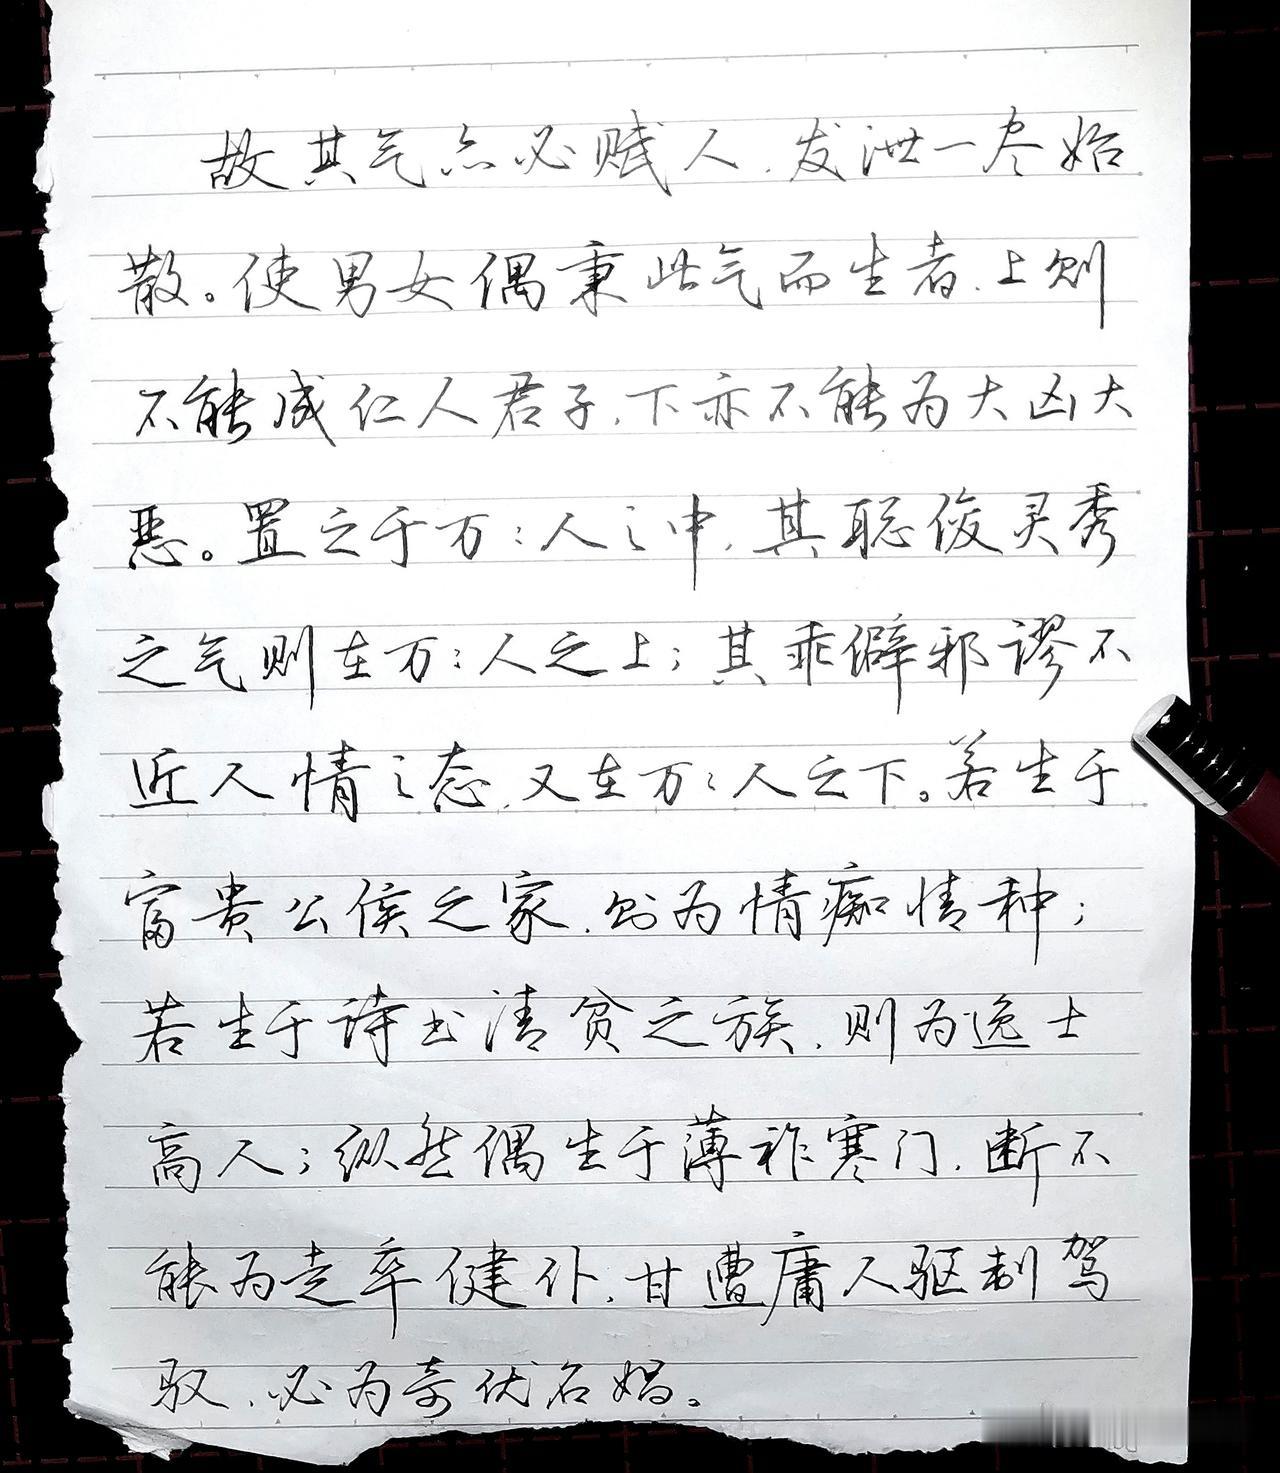 故其气亦必赋人，发泄一尽始
散。使男女偶秉此气而生者，上则
不能成仁人君子，下亦不能为大凶大
恶。置之于万：人之中，其聪俊灵秀
之气则在万：人之上；其乖僻邪谬不
近人情之态，又在万：人之下。若生于
富贵公侯之家，则为情痴情种；
若生于诗书清贫之族，则为逸士
高人；纵然偶生于薄祚寒门，断不
能为走卒健仆，甘遭庸人驱制驾
驭，必为奇优名娼。